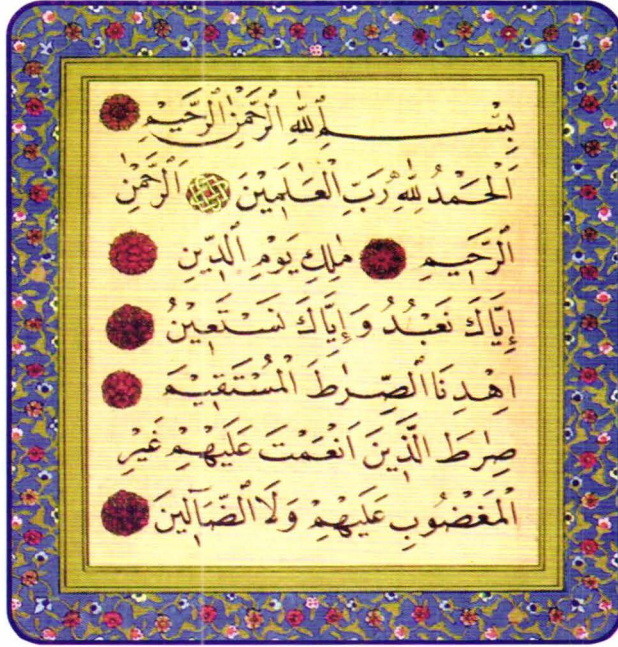 بِسْمِ ٱللّٰهِ ٱلرَّحْمٰنِ ٱلرَّحٖيمِ
اَلْحَمْدُ لِلّٰهِ رَبِّ ٱلْعَالَمٖينَ اَلرَّحْمٰنِ
ٱلرَّحٖيمِ مٰلِكِ يَوْمِ ٱلدّٖينِ
اِيَّاكَ نَعْبُدُ وَاِيَّاكَ نَسْتَعٖينُ
اِهْدِنَا ٱلصِّرٰطَ ٱلْمُسْتَقٖيمَ
صِرٰطَ ٱلَّذٖينَ اَنْعَمْتَ عَلَيْهِمْ غَيْرِ
ٱلْمَغْضُوبِ عَلَيْهِمْ وَلَا ٱلضَّٓالّٖينَ